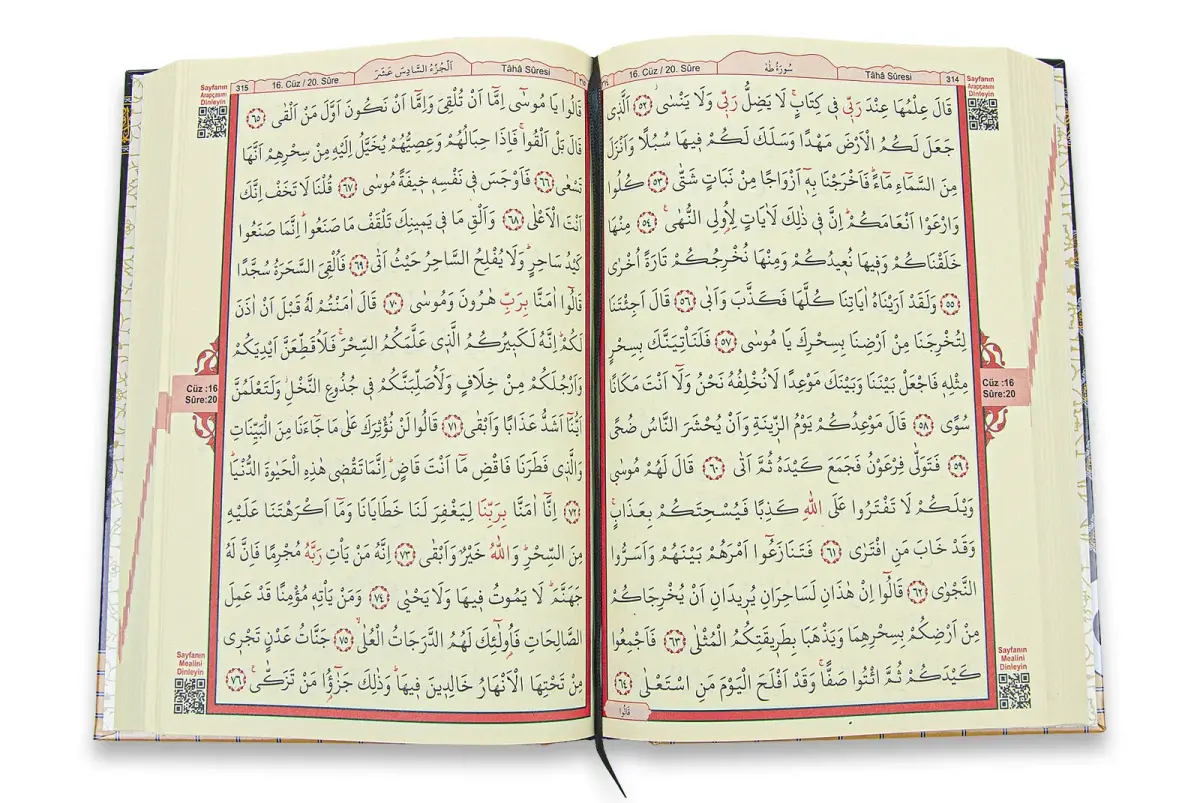 314
Tâhâ Sûresi
سُورَةُ طٰهٰ
16. Cüz / 20. Sûre
Sayfanın
Arapçasını
Dinleyin
قَالَ عِلْمُهَا عِنْدَ رَبّ۪ي ف۪ي كِتَابٍۚ لَا يَضِلُّ رَبّ۪ي وَلَا يَنْسٰىۘ ﴿٥٢﴾ اَلَّذ۪ي
جَعَلَ لَكُمُ الْاَرْضَ مَهْدًا وَسَلَكَ لَكُمْ ف۪يهَا سُبُلًا وَاَنْزَلَ
مِنَ السَّمَٓاءِ مَٓاءًۜ فَاَخْرَجْنَا بِه۪ٓ اَزْوَاجًا مِنْ نَبَاتٍ شَتّٰى ﴿٥٣﴾ كُلُوا
وَارْعَوْا اَنْعَامَكُمْۜ اِنَّ ف۪ي ذٰلِكَ لَاٰيَاتٍ لِاُو۬لِي النُّهٰى۟ ﴿٥٤﴾ مِنْهَا
خَلَقْنَاكُمْ وَف۪يهَا نُع۪يدُكُمْ وَمِنْهَا نُخْرِجُكُمْ تَارَةً اُخْرٰى
﴿٥٥﴾ وَلَقَدْ اَرَيْنَاهُ اٰيَاتِنَا كُلَّهَا فَكَذَّبَ وَاَبٰى ﴿٥٦﴾ قَالَ اَجِئْتَنَا
لِتُخْرِجَنَا مِنْ اَرْضِنَا بِسِحْرِكَ يَا مُوسٰى ﴿٥٧﴾ فَلَنَأْتِيَنَّكَ بِسِحْرٍ
مِثْلِه۪ فَاجْعَلْ بَيْنَنَا وَبَيْنَكَ مَوْعِدًا لَا نُخْلِفُهُ نَحْنُ وَلَٓا اَنْتَ مَكَانًا
سُوًى ﴿٥٨﴾ قَالَ مَوْعِدُكُمْ يَوْمُ الزّ۪ينَةِ وَاَنْ يُحْشَرَ النَّاسُ ضُحًى
﴿٥٩﴾ فَتَوَلّٰى فِرْعَوْنُ فَجَمَعَ كَيْدَهُ ثُمَّ اَتٰى ﴿٦٠﴾ قَالَ لَهُمْ مُوسٰى
وَيْلَكُمْ لَا تَفْتَرُوا عَلَى اللّٰهِ كَذِبًا فَيُسْحِتَكُمْ بِعَذَابٍۚ
وَقَدْ خَابَ مَنِ افْتَرٰى ﴿٦١﴾ فَتَنَازَعُٓوا اَمْرَهُمْ بَيْنَهُمْ وَاَسَرُّوا
النَّجْوٰى ﴿٦٢﴾ قَالُٓوا اِنْ هٰذَانِ لَسَاحِرَانِ يُر۪يدَانِ اَنْ يُخْرِجَاكُمْ
مِنْ اَرْضِكُمْ بِسِحْرِهِمَا وَيَذْهَبَا بِطَر۪يقَتِكُمُ الْمُثْلٰى ﴿٦٣﴾ فَاَجْمِعُوا
كَيْدَكُمْ ثُمَّ ائْتُوا صَفًّاۚ وَقَدْ اَفْلَحَ الْيَوْمَ مَنِ اسْتَعْلٰى ﴿٦٤﴾
قَالُوا
Cüz :16
Sûre:20
Sayfanın
Mealini
Dinleyin
Tâhâ Sûresi
اَلْجُزْءُ السَّادِسَ عَشَرَ
16. Cüz / 20. Sûre
315
Sayfanın
Arapçasını
Dinleyin
قَالُوا يَا مُوسٰٓى اِمَّٓا اَنْ تُلْقِيَ وَاِمَّٓا اَنْ نَكُونَ اَوَّلَ مَنْ اَلْقٰى ﴿٦٥﴾
قَالَ بَلْ اَلْقُواۚ فَاِذَا حِبَالُهُمْ وَعِصِيُّهُمْ يُخَيَّلُ اِلَيْهِ مِنْ سِحْرِهِمْ اَنَّهَا
تَسْعٰى ﴿٦٦﴾ فَاَوْجَسَ ف۪ي نَفْسِه۪ خ۪يفَةً مُوسٰى ﴿٦٧﴾ قُلْنَا لَا تَخَفْ اِنَّكَ
اَنْتَ الْاَعْلٰى ﴿٦٨﴾ وَاَلْقِ مَا ف۪ي يَم۪ينِكَ تَلْقَفْ مَا صَنَعُواۜ اِنَّمَا صَنَعُوا
كَيْدُ سَاحِرٍۜ وَلَا يُفْلِحُ السَّاحِرُ حَيْثُ اَتٰى ﴿٦٩﴾ فَاُلْقِيَ السَّحَرَةُ سُجَّدًا
قَالُٓوا اٰمَنَّا بِرَبِّ هٰرُونَ وَمُوسٰى ﴿٧٠﴾ قَالَ اٰمَنْتُمْ لَهُ قَبْلَ اَنْ اٰذَنَ
لَكُمْۜ اِنَّهُ لَكَب۪يرُكُمُ الَّذ۪ي عَلَّمَكُمُ السِّحْرَۚ فَلَاُقَطِّعَنَّ اَيْدِيَكُمْ
وَاَرْجُلَكُمْ مِنْ خِلَافٍ وَلَاُصَلِّبَنَّكُمْ ف۪ي جُذُوعِ النَّخْلِۘ وَلَتَعْلَمُنَّ
اَيُّنَٓا اَشَدُّ عَذَابًا وَاَبْقٰى ﴿٧١﴾ قَالُوا لَنْ نُؤْثِرَكَ عَلٰى مَا جَٓاءَنَا مِنَ الْبَيِّنَاتِ
وَالَّذ۪ي فَطَرَنَا فَاقْضِ مَٓا اَنْتَ قَاضٍۜ اِنَّمَا تَقْض۪ي هٰذِهِ الْحَيٰوةَ الدُّنْيَاۜ
﴿٧٢﴾ اِنَّٓا اٰمَنَّا بِرَبِّنَا لِيَغْفِرَ لَنَا خَطَايَانَا وَمَٓا اَكْرَهْتَنَا عَلَيْهِ
مِنَ السِّحْرِۜ وَاللّٰهُ خَيْرٌ وَاَبْقٰى ﴿٧٣﴾ اِنَّهُ مَنْ يَأْتِ رَبَّهُ مُجْرِمًا فَاِنَّ لَهُ
جَهَنَّمَۜ لَا يَمُوتُ ف۪يهَا وَلَا يَحْيٰى ﴿٧٤﴾ وَمَنْ يَأْتِه۪ مُؤْمِنًا قَدْ عَمِلَ
الصَّالِحَاتِ فَاُو۬لٰٓئِكَ لَهُمُ الدَّرَجَاتُ الْعُلٰىۙ ﴿٧٥﴾ جَنَّاتُ عَدْنٍ تَجْر۪ي
مِنْ تَحْتِهَا الْاَنْهَارُ خَالِد۪ينَ ف۪يهَاۜ وَذٰلِكَ جَزٰٓؤُا مَنْ تَزَكّٰى۟ ﴿٧٦﴾
Cüz :16
Sûre:20
Sayfanın
Mealini
Dinleyin